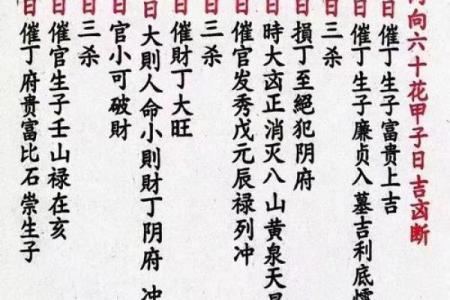 向六十花甲子日吉凶断
日催丁生子富贵上吉
日催丁生子廉贞入墓吉利底
日三杀
日損丁至絕犯阴府
日時大凶正消灭八山黄泉天
日催官发秀戊元辰禄列冲
日三杀
日催財丁大旺
日大則人命小則財丁阴府 冲
日官小可破財
日三杀
日催官生子壬山禄在亥
日催丁府贵富比石崇生子